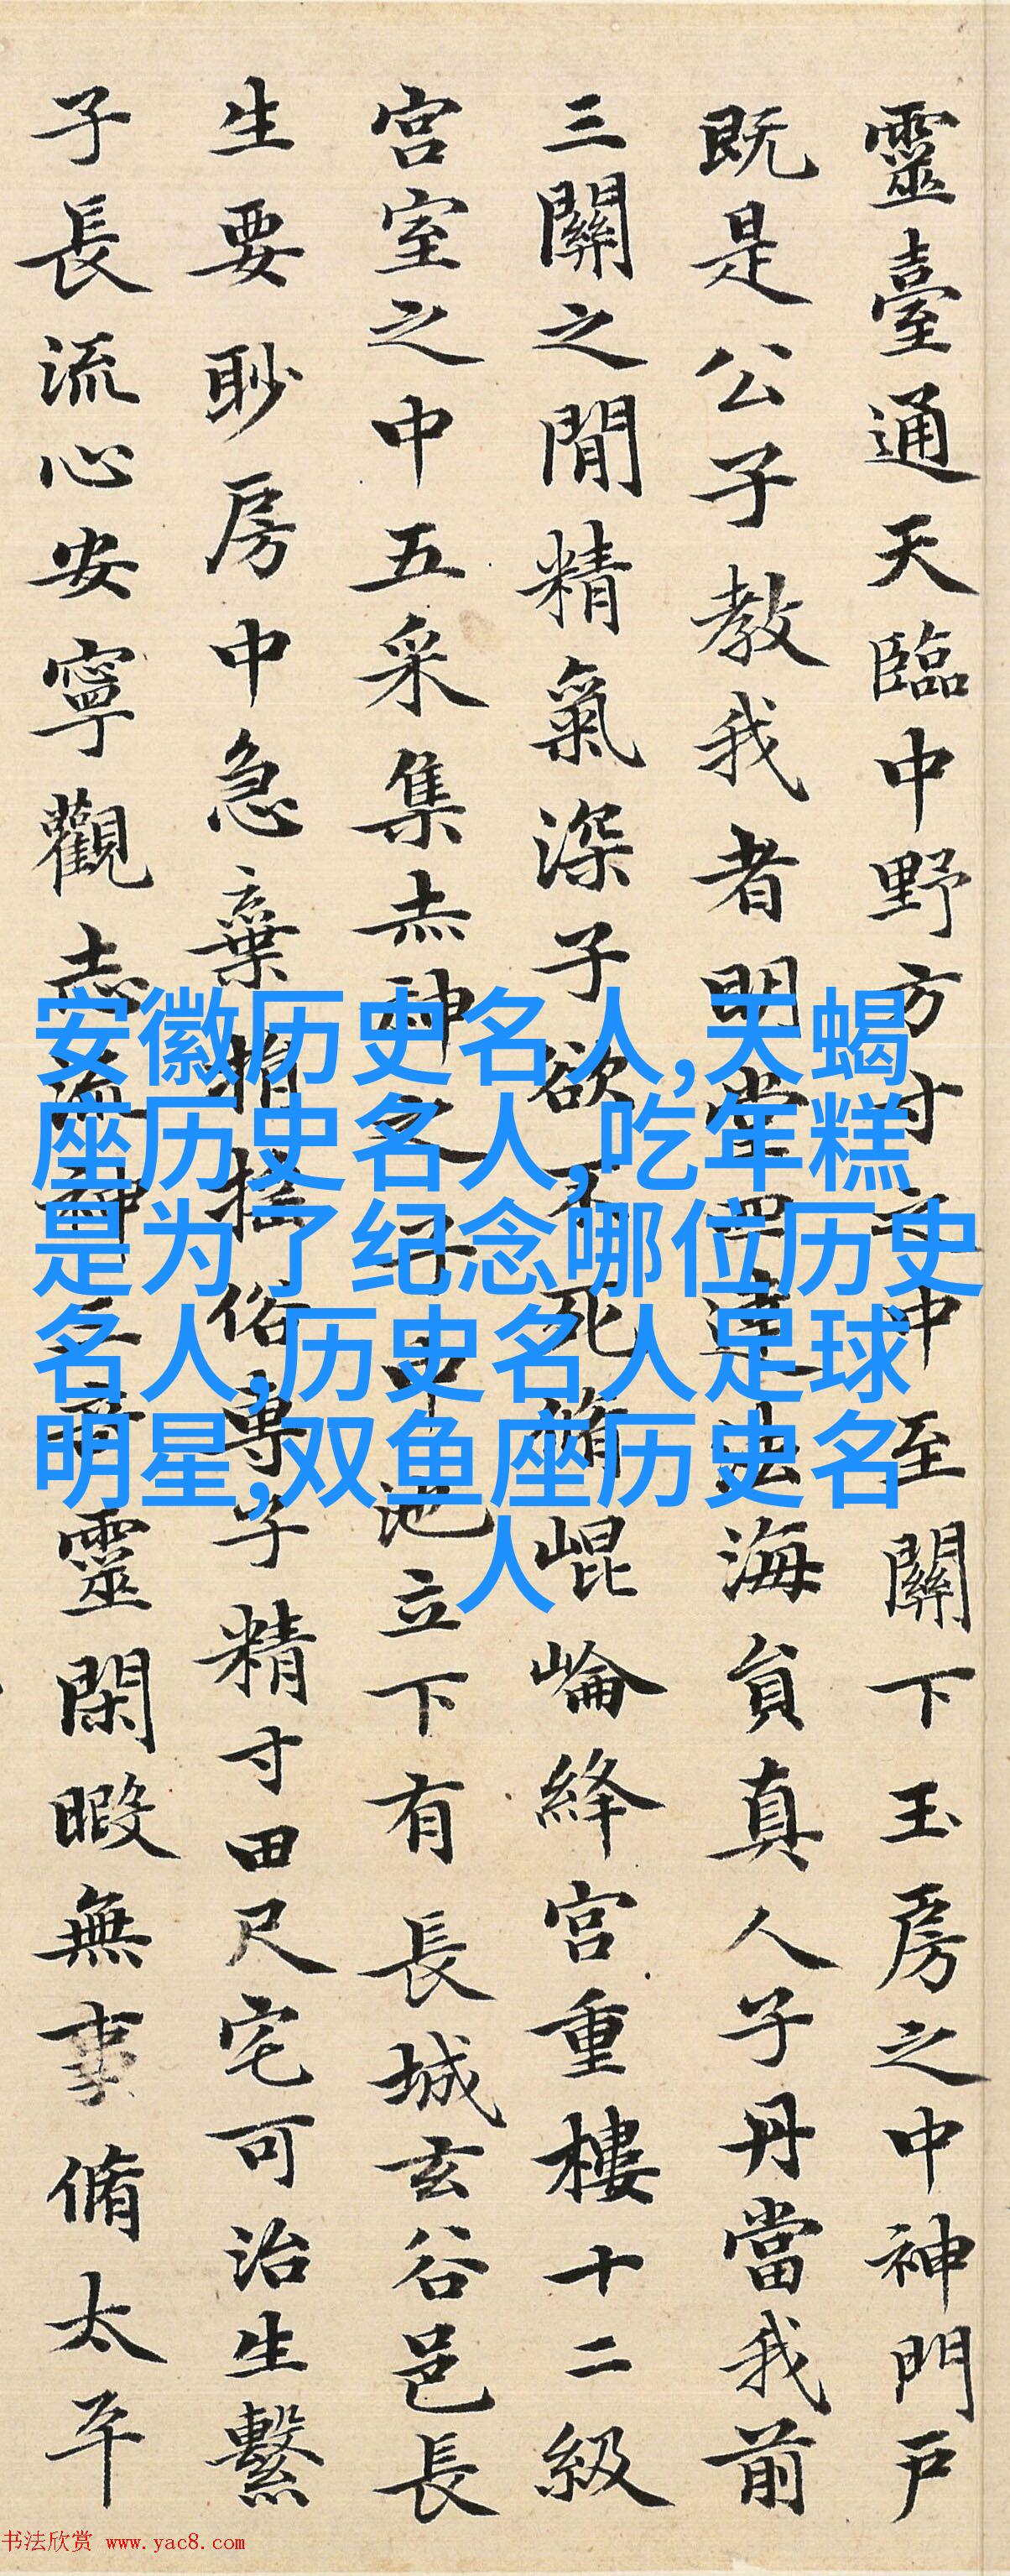 靈臺通天臨中野方寸之中至關下玉房之中神門戶
既是公子教我者明堂四達法海員真人子丹當我前
三關之閒精氣深子欲不死脩崐崘絳宮重樓十二級
宮室之中五采集赤神之子中池立下有長城玄谷邑長
生要眇房中急棄捐搖俗專子精寸田尺宅可治生繫
子長流心安寧觀志流神三奇靈閑暇無事脩太平
安徽历史名人,天蝎
座历史名人,吃年糕
是为了纪念哪位历史
名人,历史名人足球
明星,双鱼座历史名
人
书法欣赏 www.yac8.com